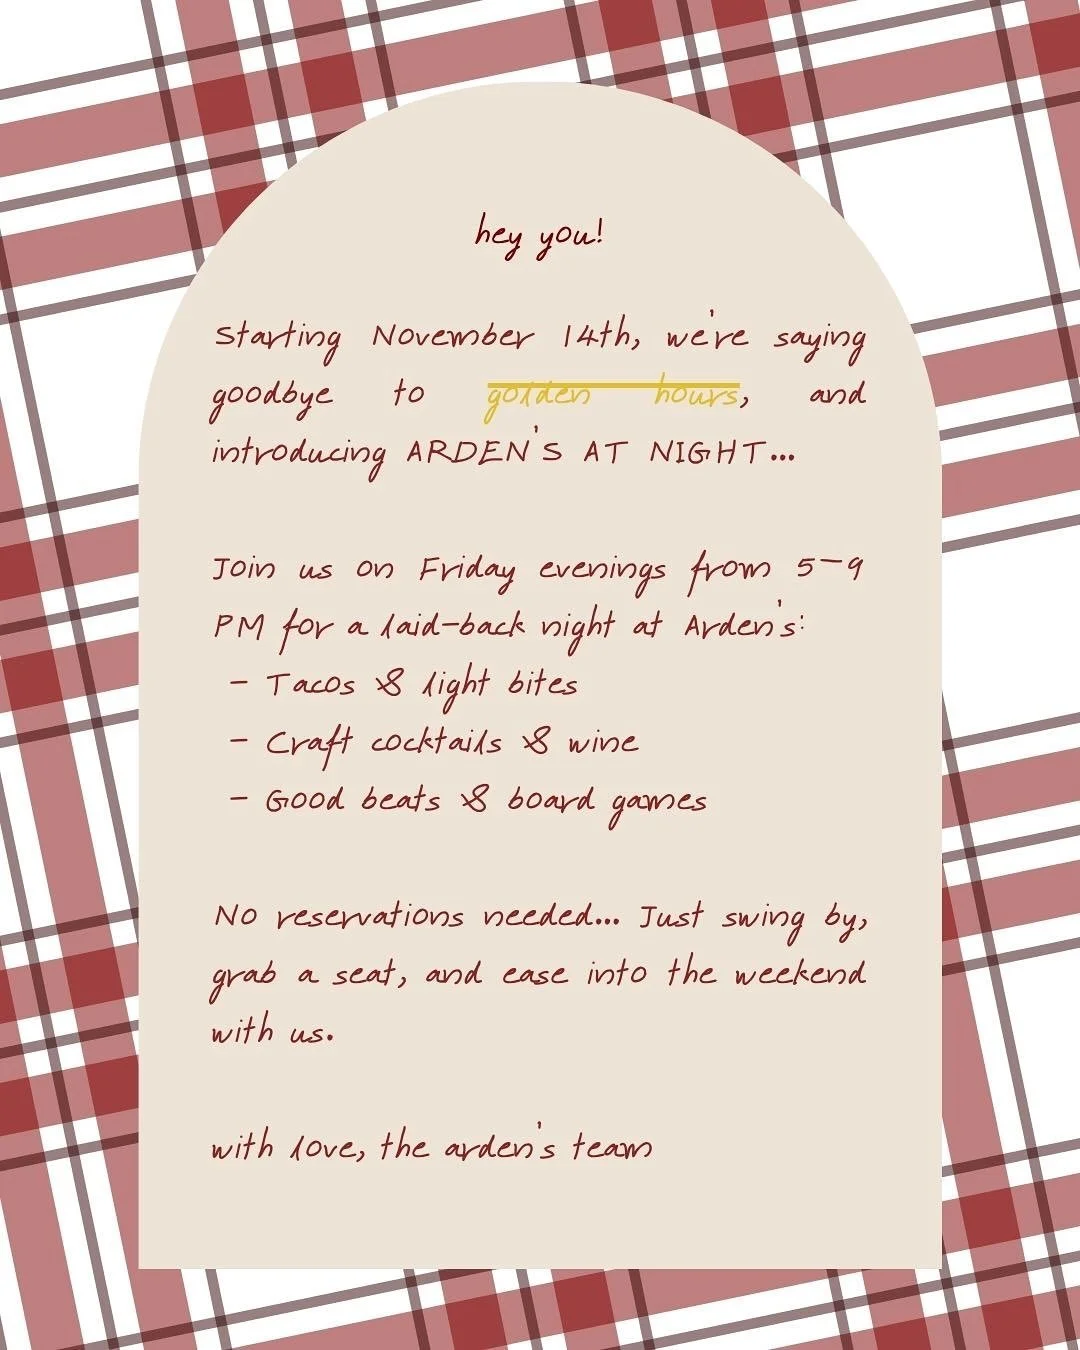 hey you!
Starting November 14th, we're saying
goodbye to golden hours, and
introducing ARDEN'S AT NIGHT...
Join us on Friday evenings from 5-9
PM for a laid-back night at Arden's:
- Tacos & light bites
- Craft cocktails & wine
- Good beats & board games
No reservations needed... Just swing by,
grab a seat, and ease into the weekend
with us.
with love, the arden's team